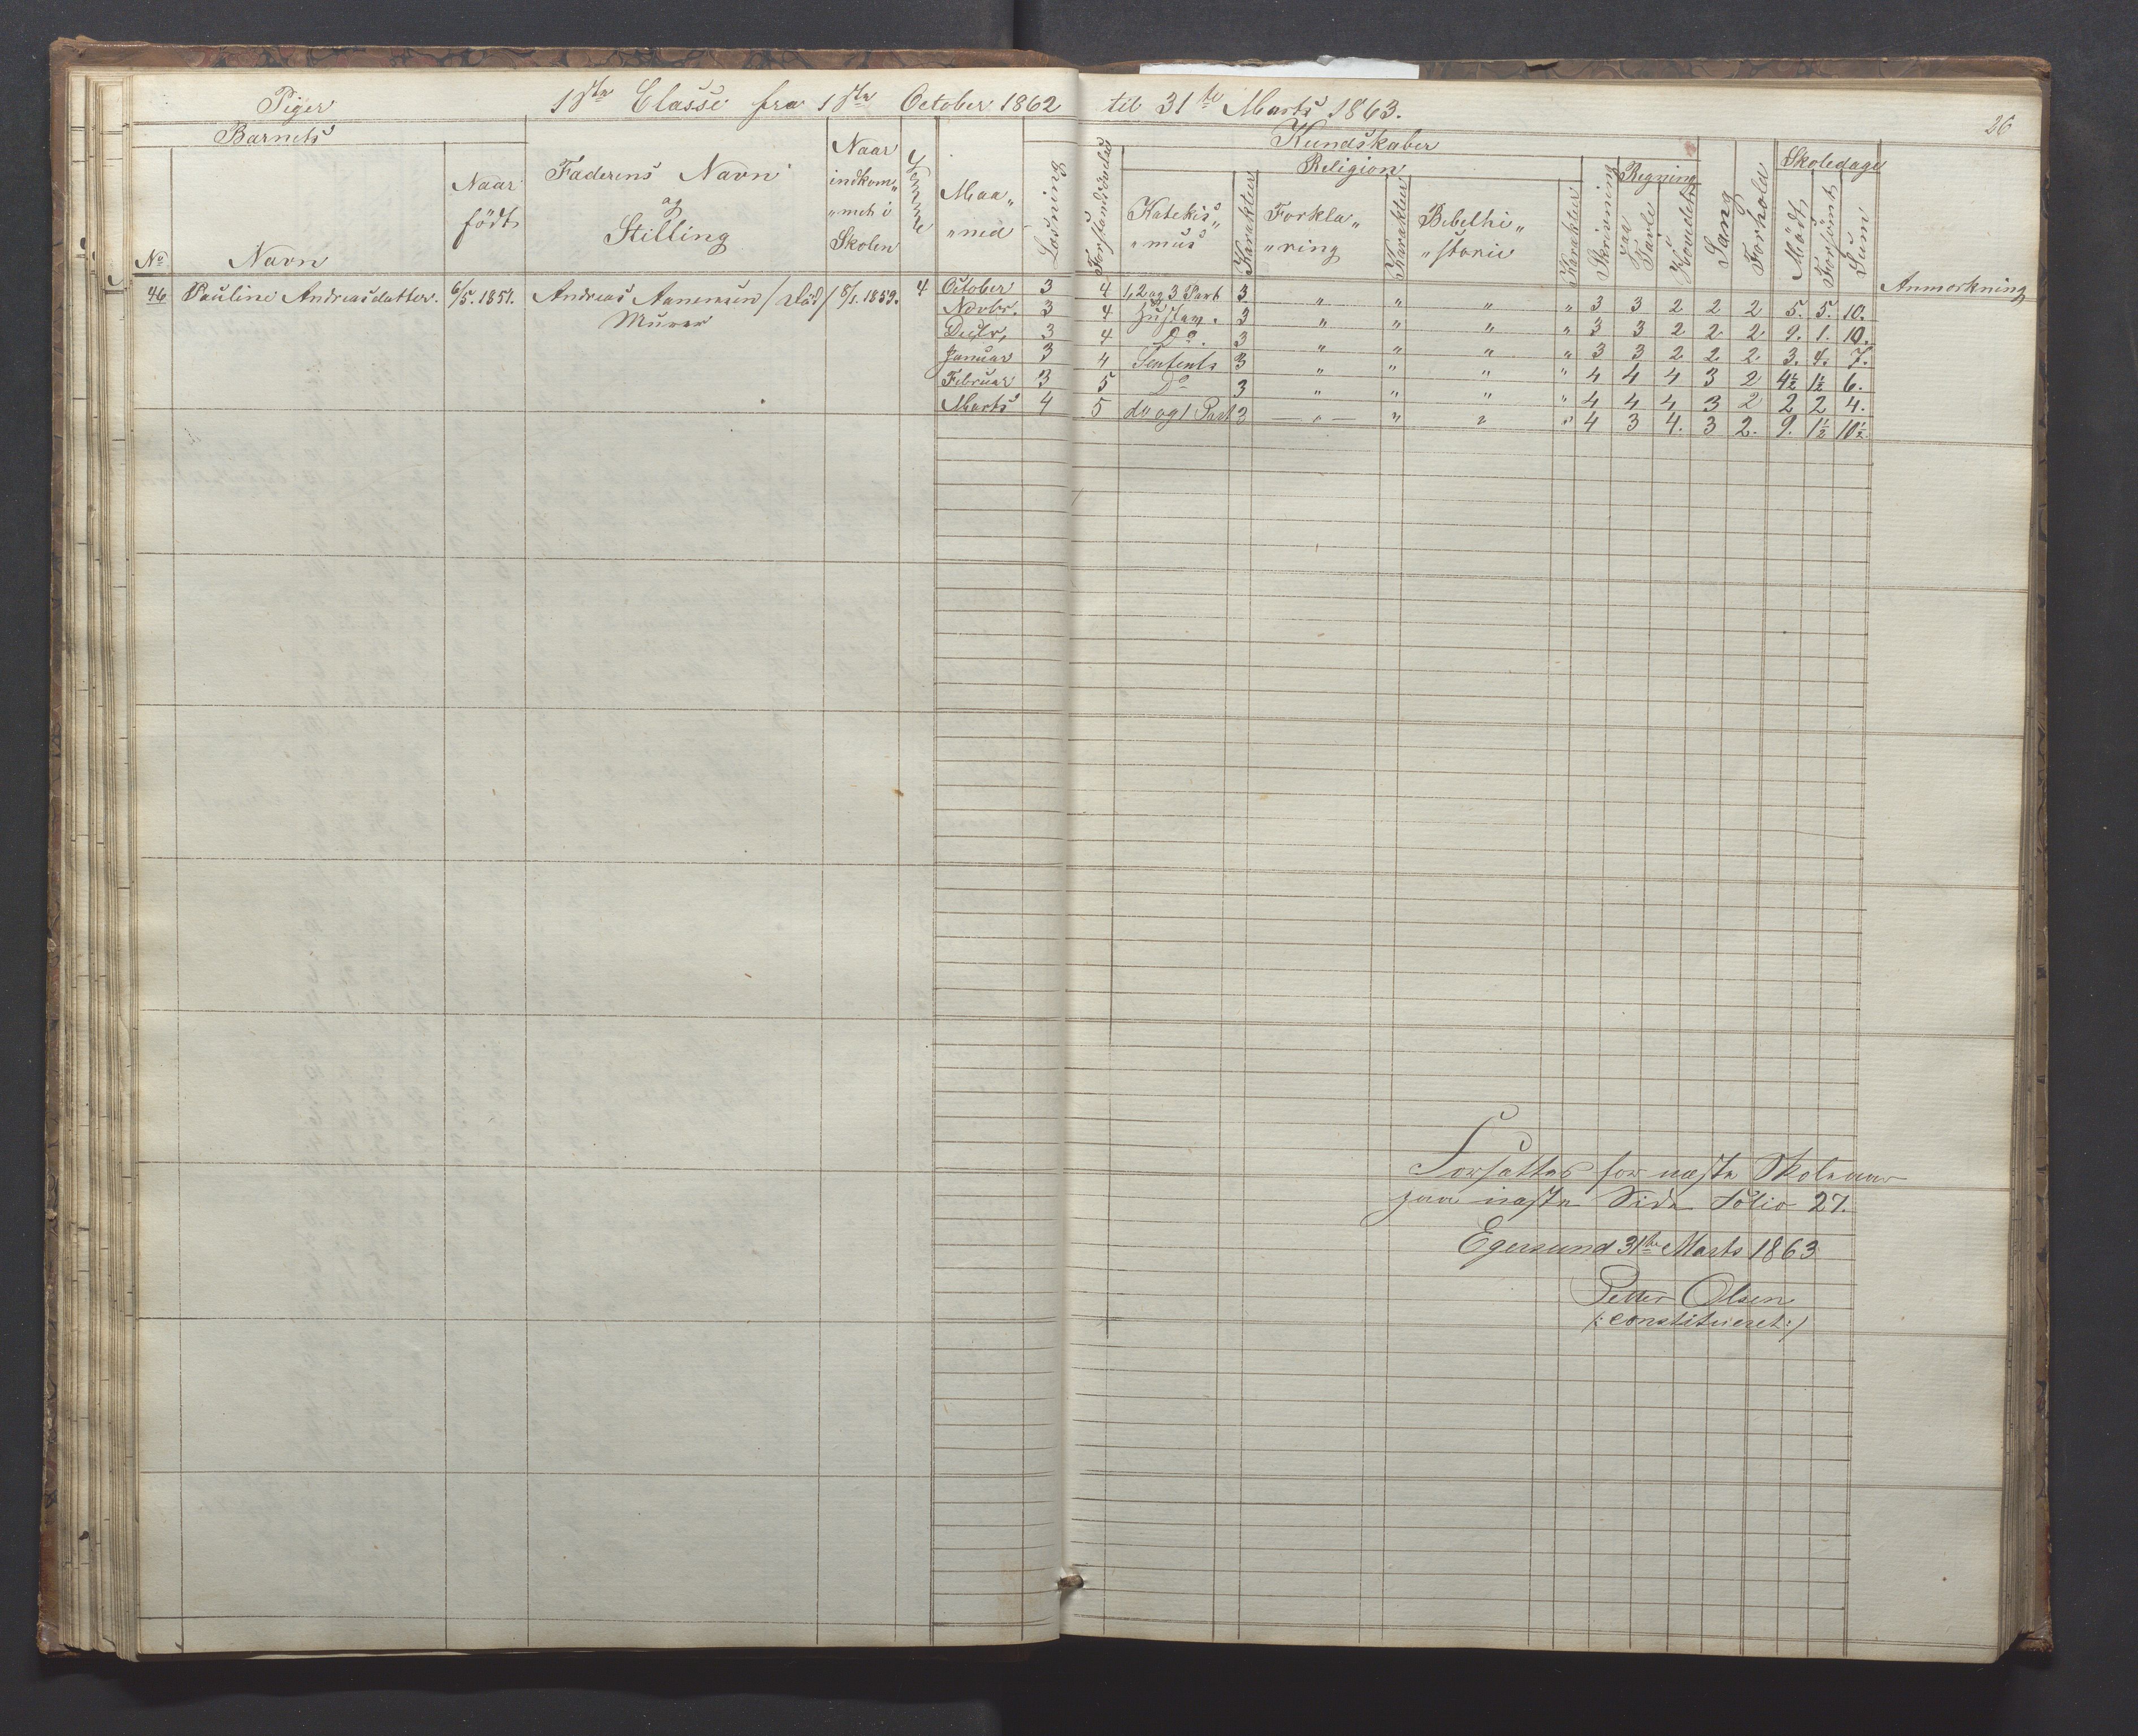 Piger 1ste Classe fra 1ste October 1862 til 31te Marts 1863.
26
Barnets
Kundskaber
No
Navn
Naar födt
Faderens Navn og Stilling
Naar indkom„ „met i Skolen
Maa„ „ned
Læsning
Forstandsövelse
Religion
Katekis„ „mus
Karakteer
Forkla„ „ring
Karakteer
Bibelhi„ „storie
Karakteer
Skrivning
Regning
paa Tavle
Hovedet
Sang
Forhold
Skoledage
Mödt
Forsömt
Sum
Anmærkning
46 Pauline Andreasdatter. 6/5. 1851. Andreas Aanensen / död / 8/1. 1859. 4 October 3 4 1, 2 og 3 Part 3 „ „ „ „ 3 3 2 2 2 5. 5. 10.
Murer Novbr. 3 4 3 „ „ „ „ 3 3 2 2 2 9. 1. 10.
Decbr, 3 4 Do. 3 „ „ „ „ 3 3 2 2 2 3. 4. 7.
Januar 3 4 3 „ „ „ „ 4 4 4 3 2 4½ 1½ 6.
Februar 3 5 Do 3 „ „ „ „ 4 4 4 3 2 2 2 4.
Marts 4 5 do og 1 Part 3 „ „ „ „ 4 3 4. 3 2. 9. 1½ 10½.
Forsættes for næste Skoleaar
paa næste Side Folio 27.
Egersund 31te Marts 1863
Petter Olsen
/: constitueret :/